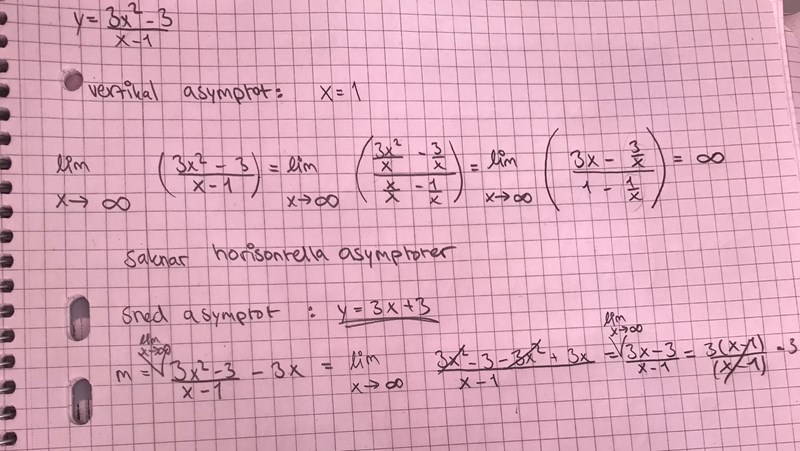 y = (3x² - 3)/(x - 1)
vertikal asymptot: x = 1
lim x→∞ ((3x² - 3)/(x - 1)) = lim x→∞ ((3x²/x - 3/x)/(x/x - 1/x)) = lim x→∞ ((3x - 3/x)/(1 - 1/x)) = ∞
Saknar horisontella asymptoter
Sned asymptot: y = 3x + 3
m = lim x→∞ (3x² - 3)/(x - 1) - 3x = lim x→∞ (3x² - 3 - 3x² + 3x)/(x - 1) = lim x→∞ (3x - 3)/(x - 1) = 3(x - 1)/(x - 1) = 3